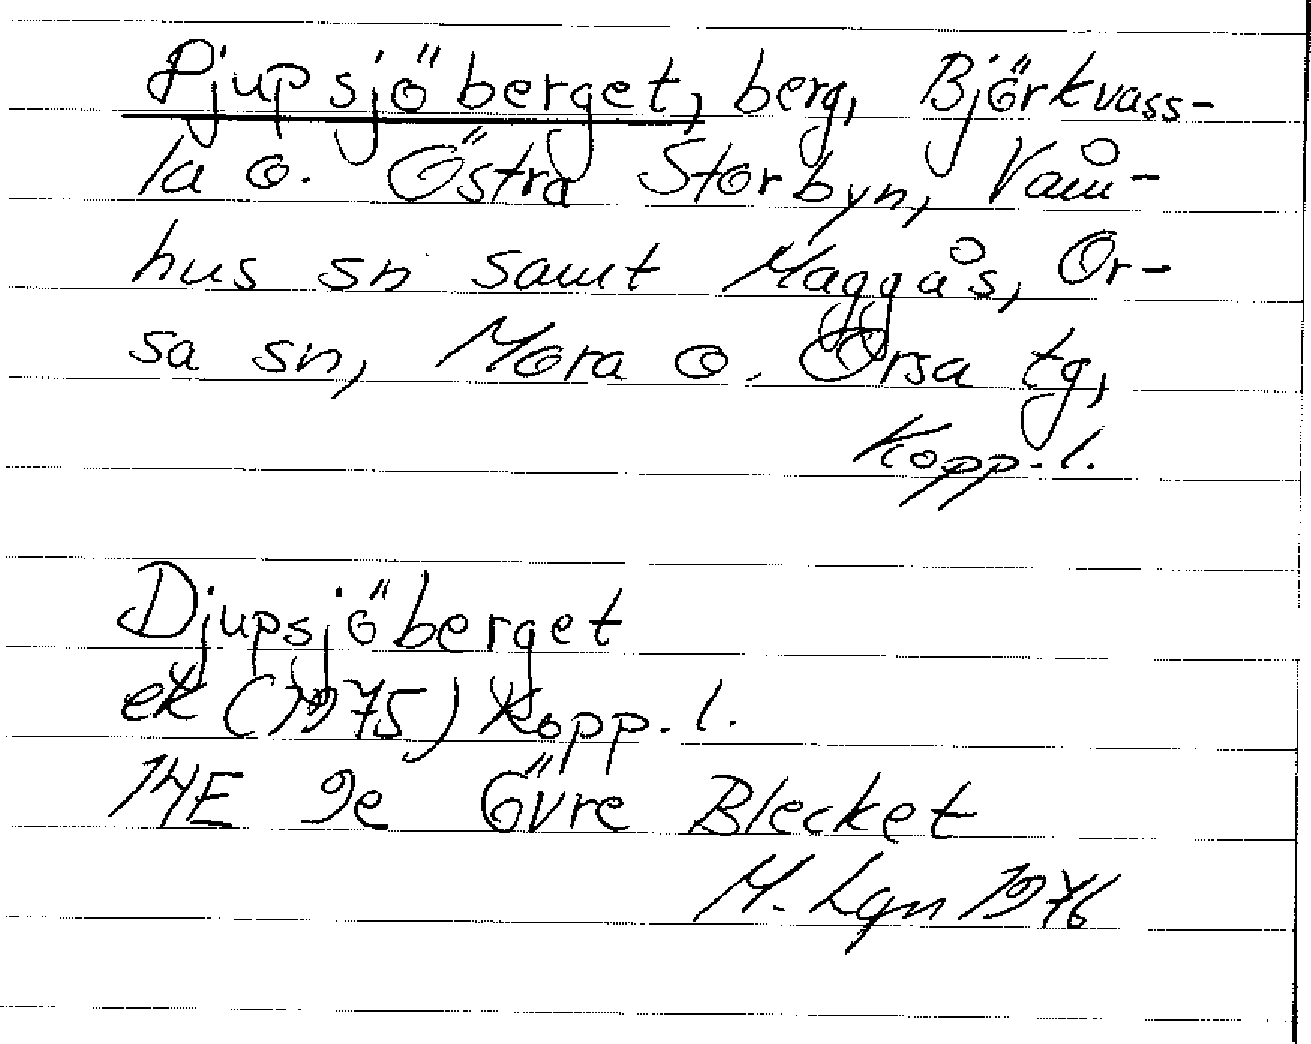 Djupsjöberget, berg, Björkvass-
la o. Östra Storbyn, Våm-
hus sn samt Maggås, Or-
sa sn, Mora o. Orsa tg,
Kopp. l.
Djupsjöberget
ek (1975) Kopp. l.
14E 9e Övre Blecket
M. Lgn 1976